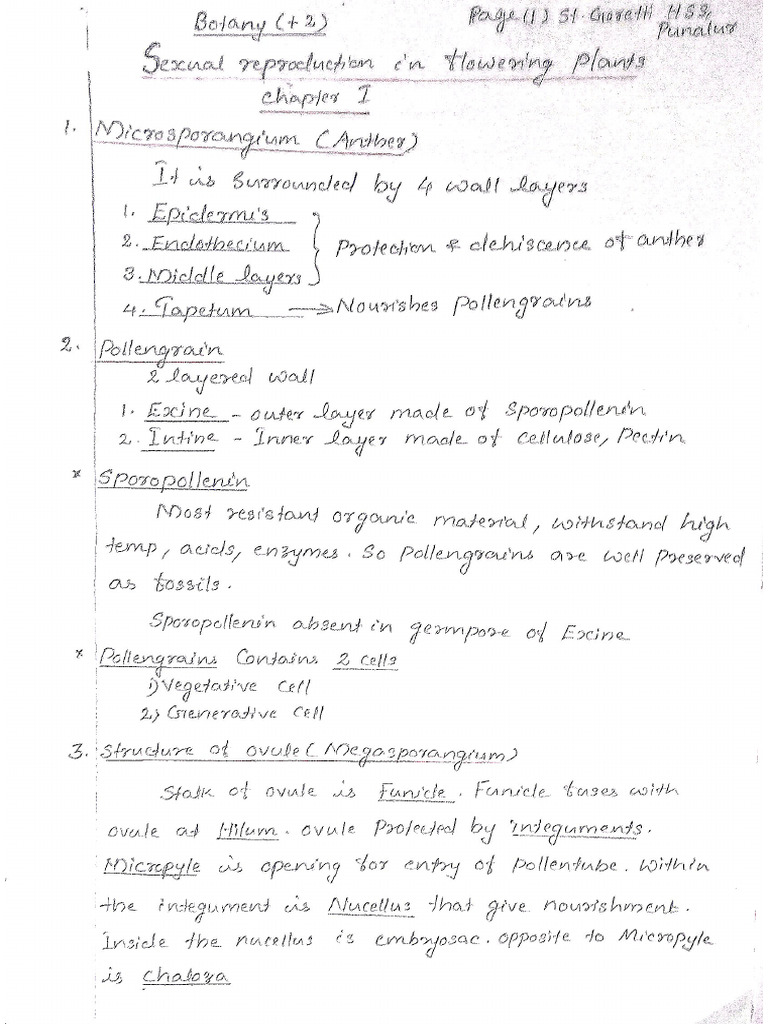 Botany (+2)
Page (1) St. Goretti HSS,
Punalur
Sexual reproduction in flowering plants
chapter I
1. Microsporangium (Anther)
It is surrounded by 4 wall layers
1. Epidermis
2. Endothecium
Protection & dehiscence of anther
3. Middle layers
4. Tapetum → Nourishes pollengrains
2. Pollengrain
2 layered wall
1. Exine - outer layer made of sporopollenin
2. Intine - Inner layer made of cellulose, Pectin
* Sporopollenin
Most resistant organic material, withstand high
temp, acids, enzymes. So pollengrains are well preserved
as fossils.
Sporopollenin absent in germpore of Exine
* Pollengrains Contains 2 cells
1) Vegetative cell
2) Generative cell
3. Structure of ovule (Megasporangium)
Stalk of ovule is Funicle. Funicle fuses with
ovule at Hilum. ovule Protected by integuments.
Micropyle is opening for entry of pollentube. within
the integument is Nucellus that give nourishment.
Inside the nucellus is embryosac. opposite to Micropyle
is chalaza